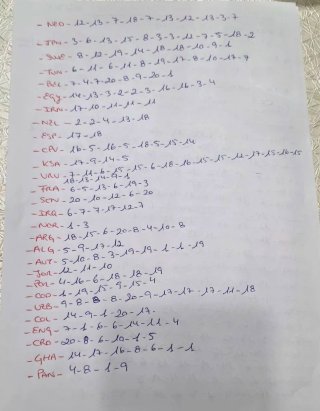 - NED - 12-13-7-18-7-13-12-13-3-7
- JPN - 3-6-13-15-8-3-3-12-7-5-18-2
- SWE - 8-12-19-14-18-18-10-9-1
- TUN - 6-11-6-11-8-19-17-8-10-17-7
- BEL - 7-4-7-20-8-9-20-1
- EGY - 14-13-3-2-2-3-16-16-3-4
- IRN - 17-10-11-11-11
- NZL - 2-2-4-13-18
- ESP - 17-18
- CPV - 16-5-16-5-18-5-15-14
- KSA - 17-9-14-5
- URU - 7-11-6-15-15-6-18-16-15-15-12-17-15-16-15
18-13-14-9-1
- FRA - 6-5-13-6-19-3
- SEN - 20-10-12-6-20
- IRQ - 6-7-7-17-12-7
- NOR - 1-3
- ARG - 18-15-6-20-8-4-10-8
- ALG - 5-9-17-12
- AUT - 5-10-8-3-19-19-1-1-19
- JOR - 12-11-10
- POR - 4-16-6-18-18-19
- COD - 1-19-15-9-15-4
- UZB - 9-8-8-8-20-9-17-17-17-11-18
- COL - 14-9-1-20-17.
- ENG - 7-1-6-6-14-11-4
- CRO - 20-8-6-10-1-5
- GHA - 14-17-16-8-6-1-1
- PAN - 4-8-1-9